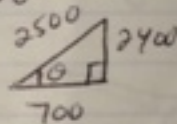 2500
2400
θ
700